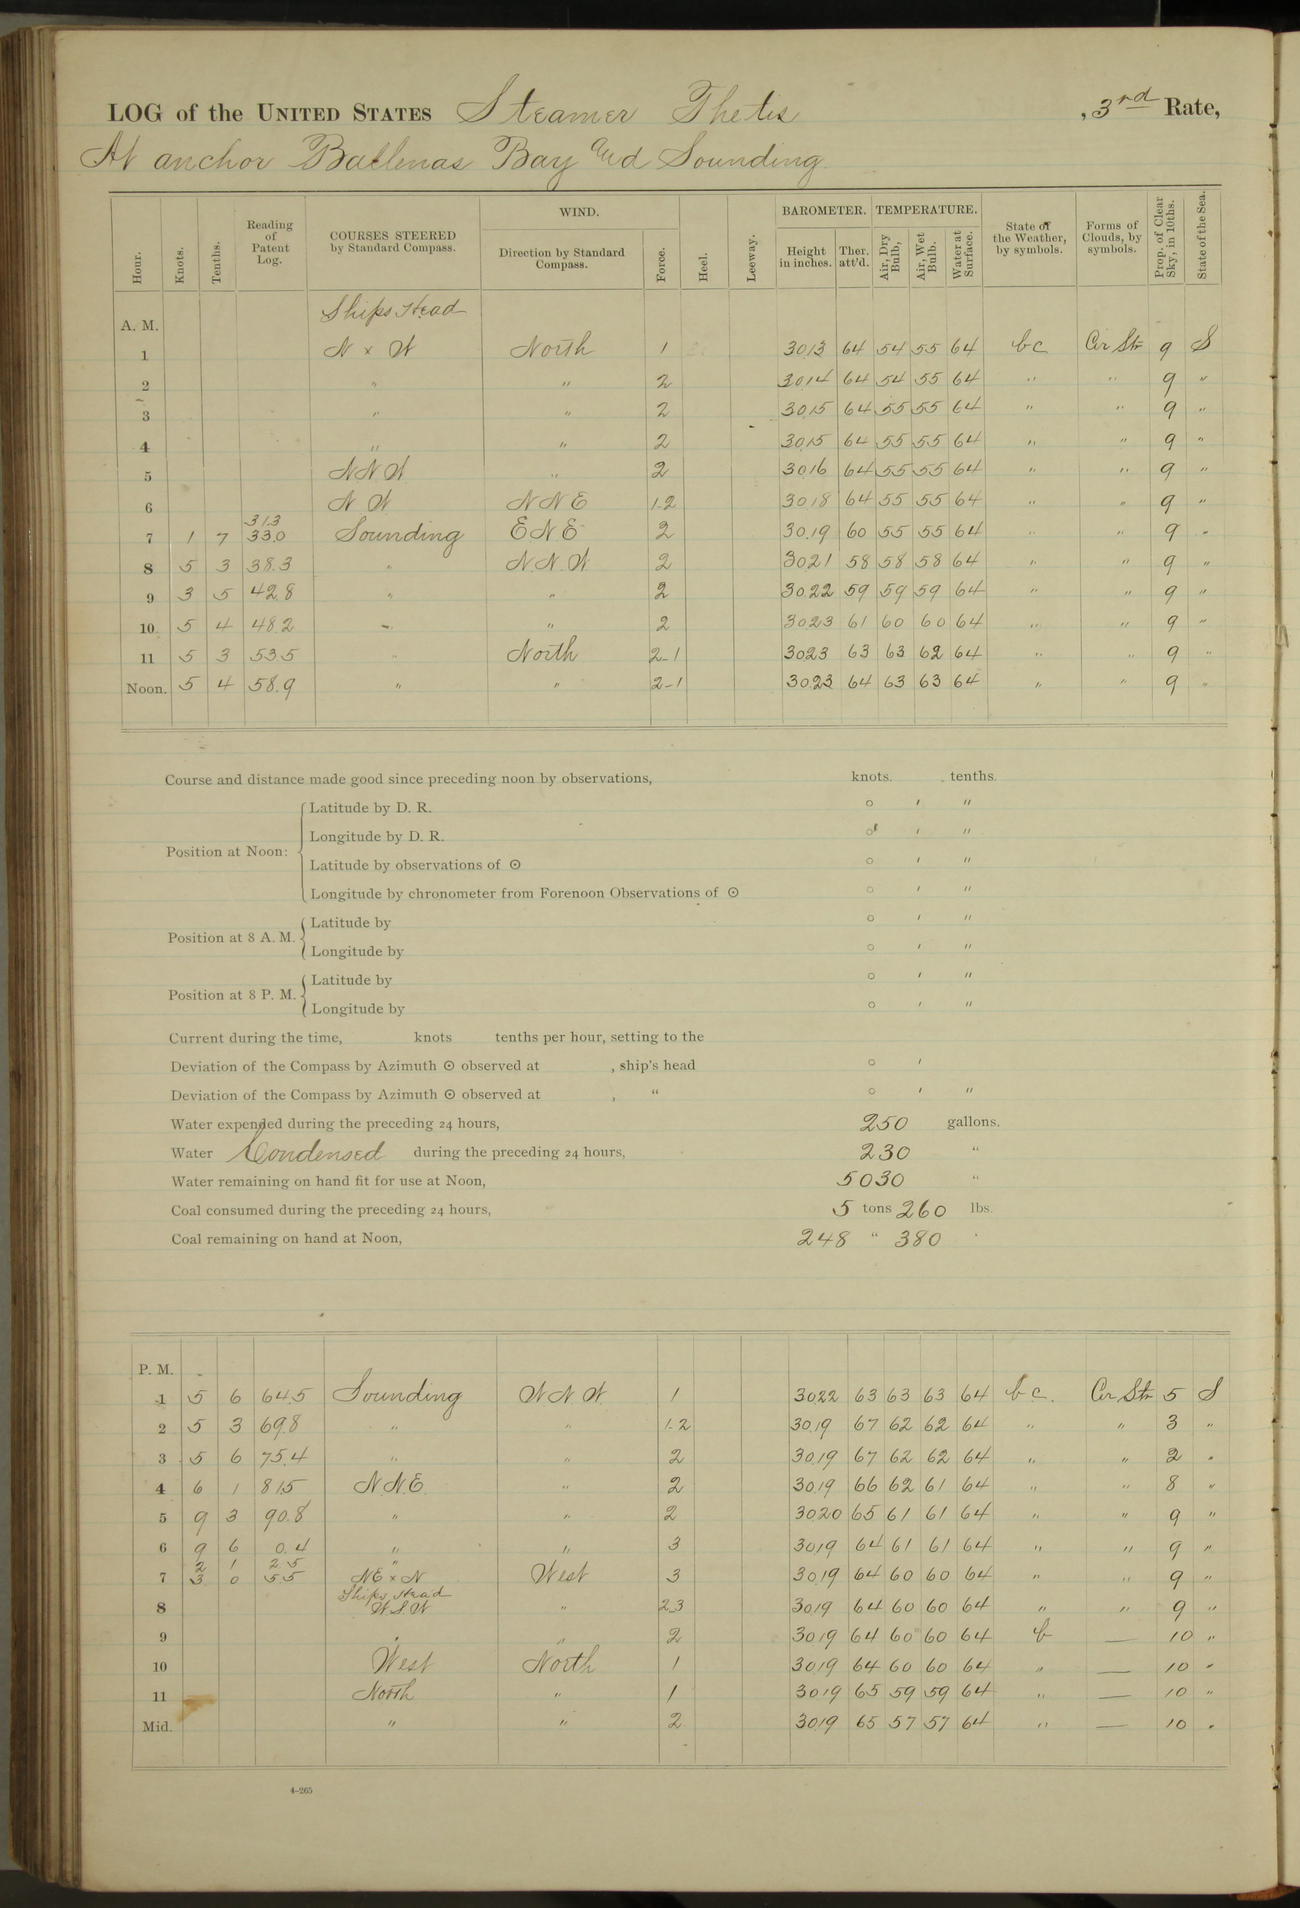 LOG of the UNITED STATES Steamer Thetis , 3rd Rate,
At anchor Ballenas Bay and Sounding.
Hour. Knots. Tenths. Reading of Patent Log. COURSES STEERED by Standard Compass. WIND. Direction by Standard Compass. Force. Heel. Leeway. BAROMETER. Height in inches. Ther. att'd. TEMPERATURE. Air, Dry Bulb, Air, Wet Bulb. Water at Surface. State of the Weather, by symbols. Forms of Clouds, by symbols. Prop. of Clear Sky, in 10ths. State of the Sea.
A. M. Ships Head
1 N x W North 1 30.13 64 54 55 64 bc Cir Str 9 S
2 " " 2 30.14 64 54 55 64 " " 9 "
3 " " 2 30.15 64 55 55 64 " " 9 "
4 " " 2 30.15 64 55 55 64 " " 9 "
5 N.N.W " 2 30.16 64 55 55 64 " " 9 "
6 N W N N E 1-2 30.18 64 55 55 64 " " 9 "
31.3
7 1 7 33.0 Sounding E N E 2 30.19 60 55 55 64 " " 9 "
8 5 3 38.3 " N.N.W 2 30.21 58 58 58 64 " " 9 "
9 3 5 42.8 " " 2 30.22 59 59 59 64 " " 9 "
10 5 4 48.2 " " 2 30.23 61 60 60 64 " " 9 "
11 5 3 53.5 " North 2-1 30.23 63 63 62 64 " " 9 "
Noon. 5 4 58.9 " " 2-1 30.23 64 63 63 64 " " 9 "
Course and distance made good since preceding noon by observations, knots. tenths.
Position at Noon:
Latitude by D. R. ° ' "
Longitude by D. R. ° ' "
Latitude by observations of ☉ ° ' "
Longitude by chronometer from Forenoon Observations of ☉ ° ' "
Position at 8 A. M.
Latitude by ° ' "
Longitude by ° ' "
Position at 8 P. M.
Latitude by ° ' "
Longitude by ° ' "
Current during the time, knots tenths per hour, setting to the
Deviation of the Compass by Azimuth ☉ observed at , ship's head ° '
Deviation of the Compass by Azimuth ☉ observed at , " ° ' "
Water expended during the preceding 24 hours, 250 gallons.
Water Condensed during the preceding 24 hours, 230 "
Water remaining on hand fit for use at Noon, 5030 "
Coal consumed during the preceding 24 hours, 5 tons 260 lbs.
Coal remaining on hand at Noon, 248 " 380 "
P. M.
1 5 6 64.5 Sounding W N W 1 30.22 63 63 63 64 b c. Cir Str 5 S
2 5 3 69.8 " " 1-2 30.19 67 62 62 64 " " 3 "
3 5 6 75.4 " " 2 30.19 67 62 62 64 " " 2 "
4 6 1 81.5 N.N.E. " 2 30.19 66 62 61 64 " " 8 "
5 9 3 90.8 " " 2 30.20 65 61 61 64 " " 9 "
6 9 6 0.4 " " 3 30.19 64 61 61 64 " " 9 "
2 1 2.5 "
7 3 0 5.5 NE x N West 3 30.19 64 60 60 64 " " 9 "
Ships Head
8 W S W " 2.3 30.19 64 60 60 64 " " 9 "
9 " " 2 30.19 64 60 60 64 b — 10 "
10 West North 1 30.19 64 60 60 64 " — 10 "
11 North " 1 30.19 65 59 59 64 " — 10 "
Mid. " " 2 30.19 65 57 57 64 " — 10 "
4-265